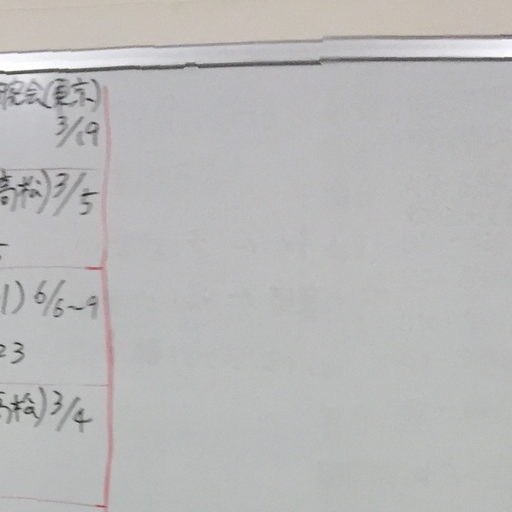 究会(東京)
3/19
高松)3/5
1)6/6~9
23
高松)3/4